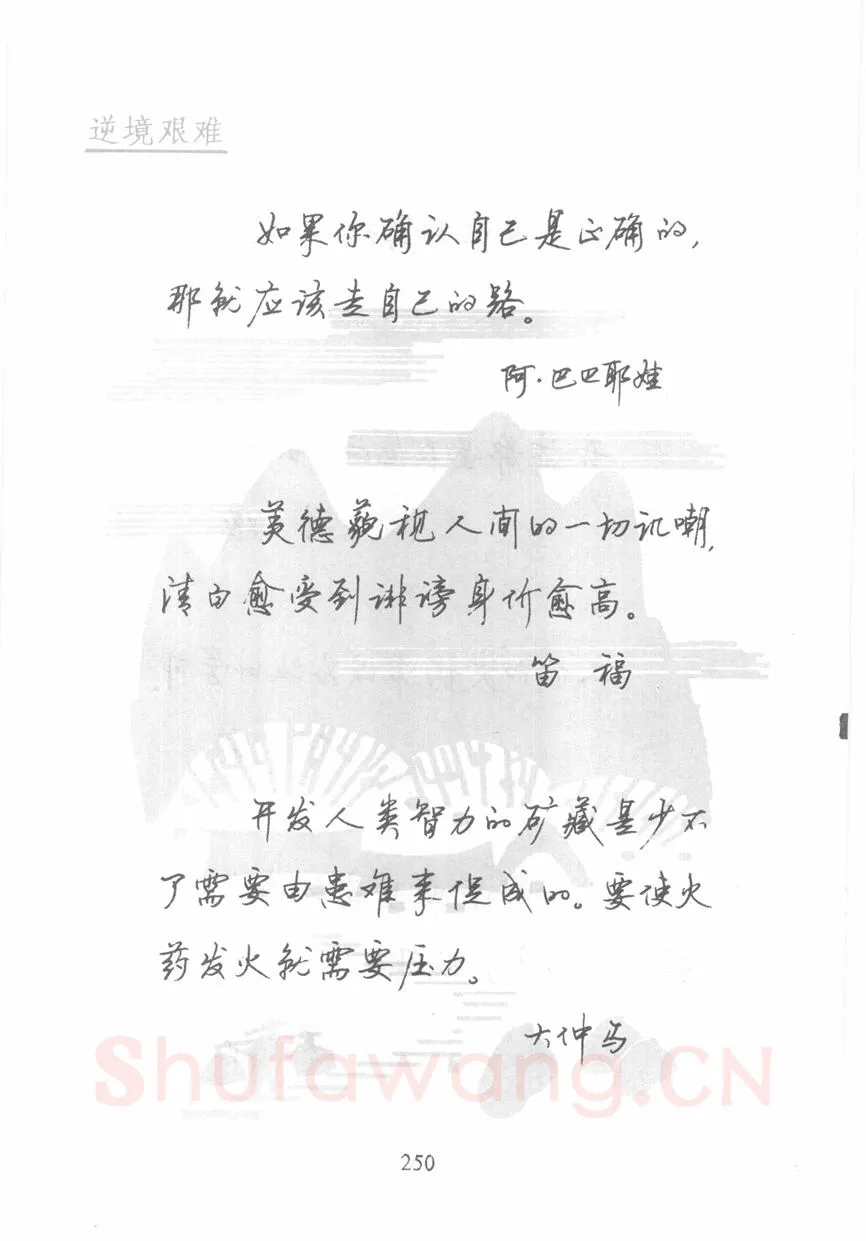 逆境艰难
如果你确认自己是正确的,
那就应该走自己的路。
阿·巴巴耶娃
美德藐视人间的一切讥嘲,
清白愈受到诽谤身价愈高。
笛 福
开发人类智力的矿藏是少不
了需要由患难来促成的。要使火
药发火就需要压力。
大仲马
Shufawang.CN
250